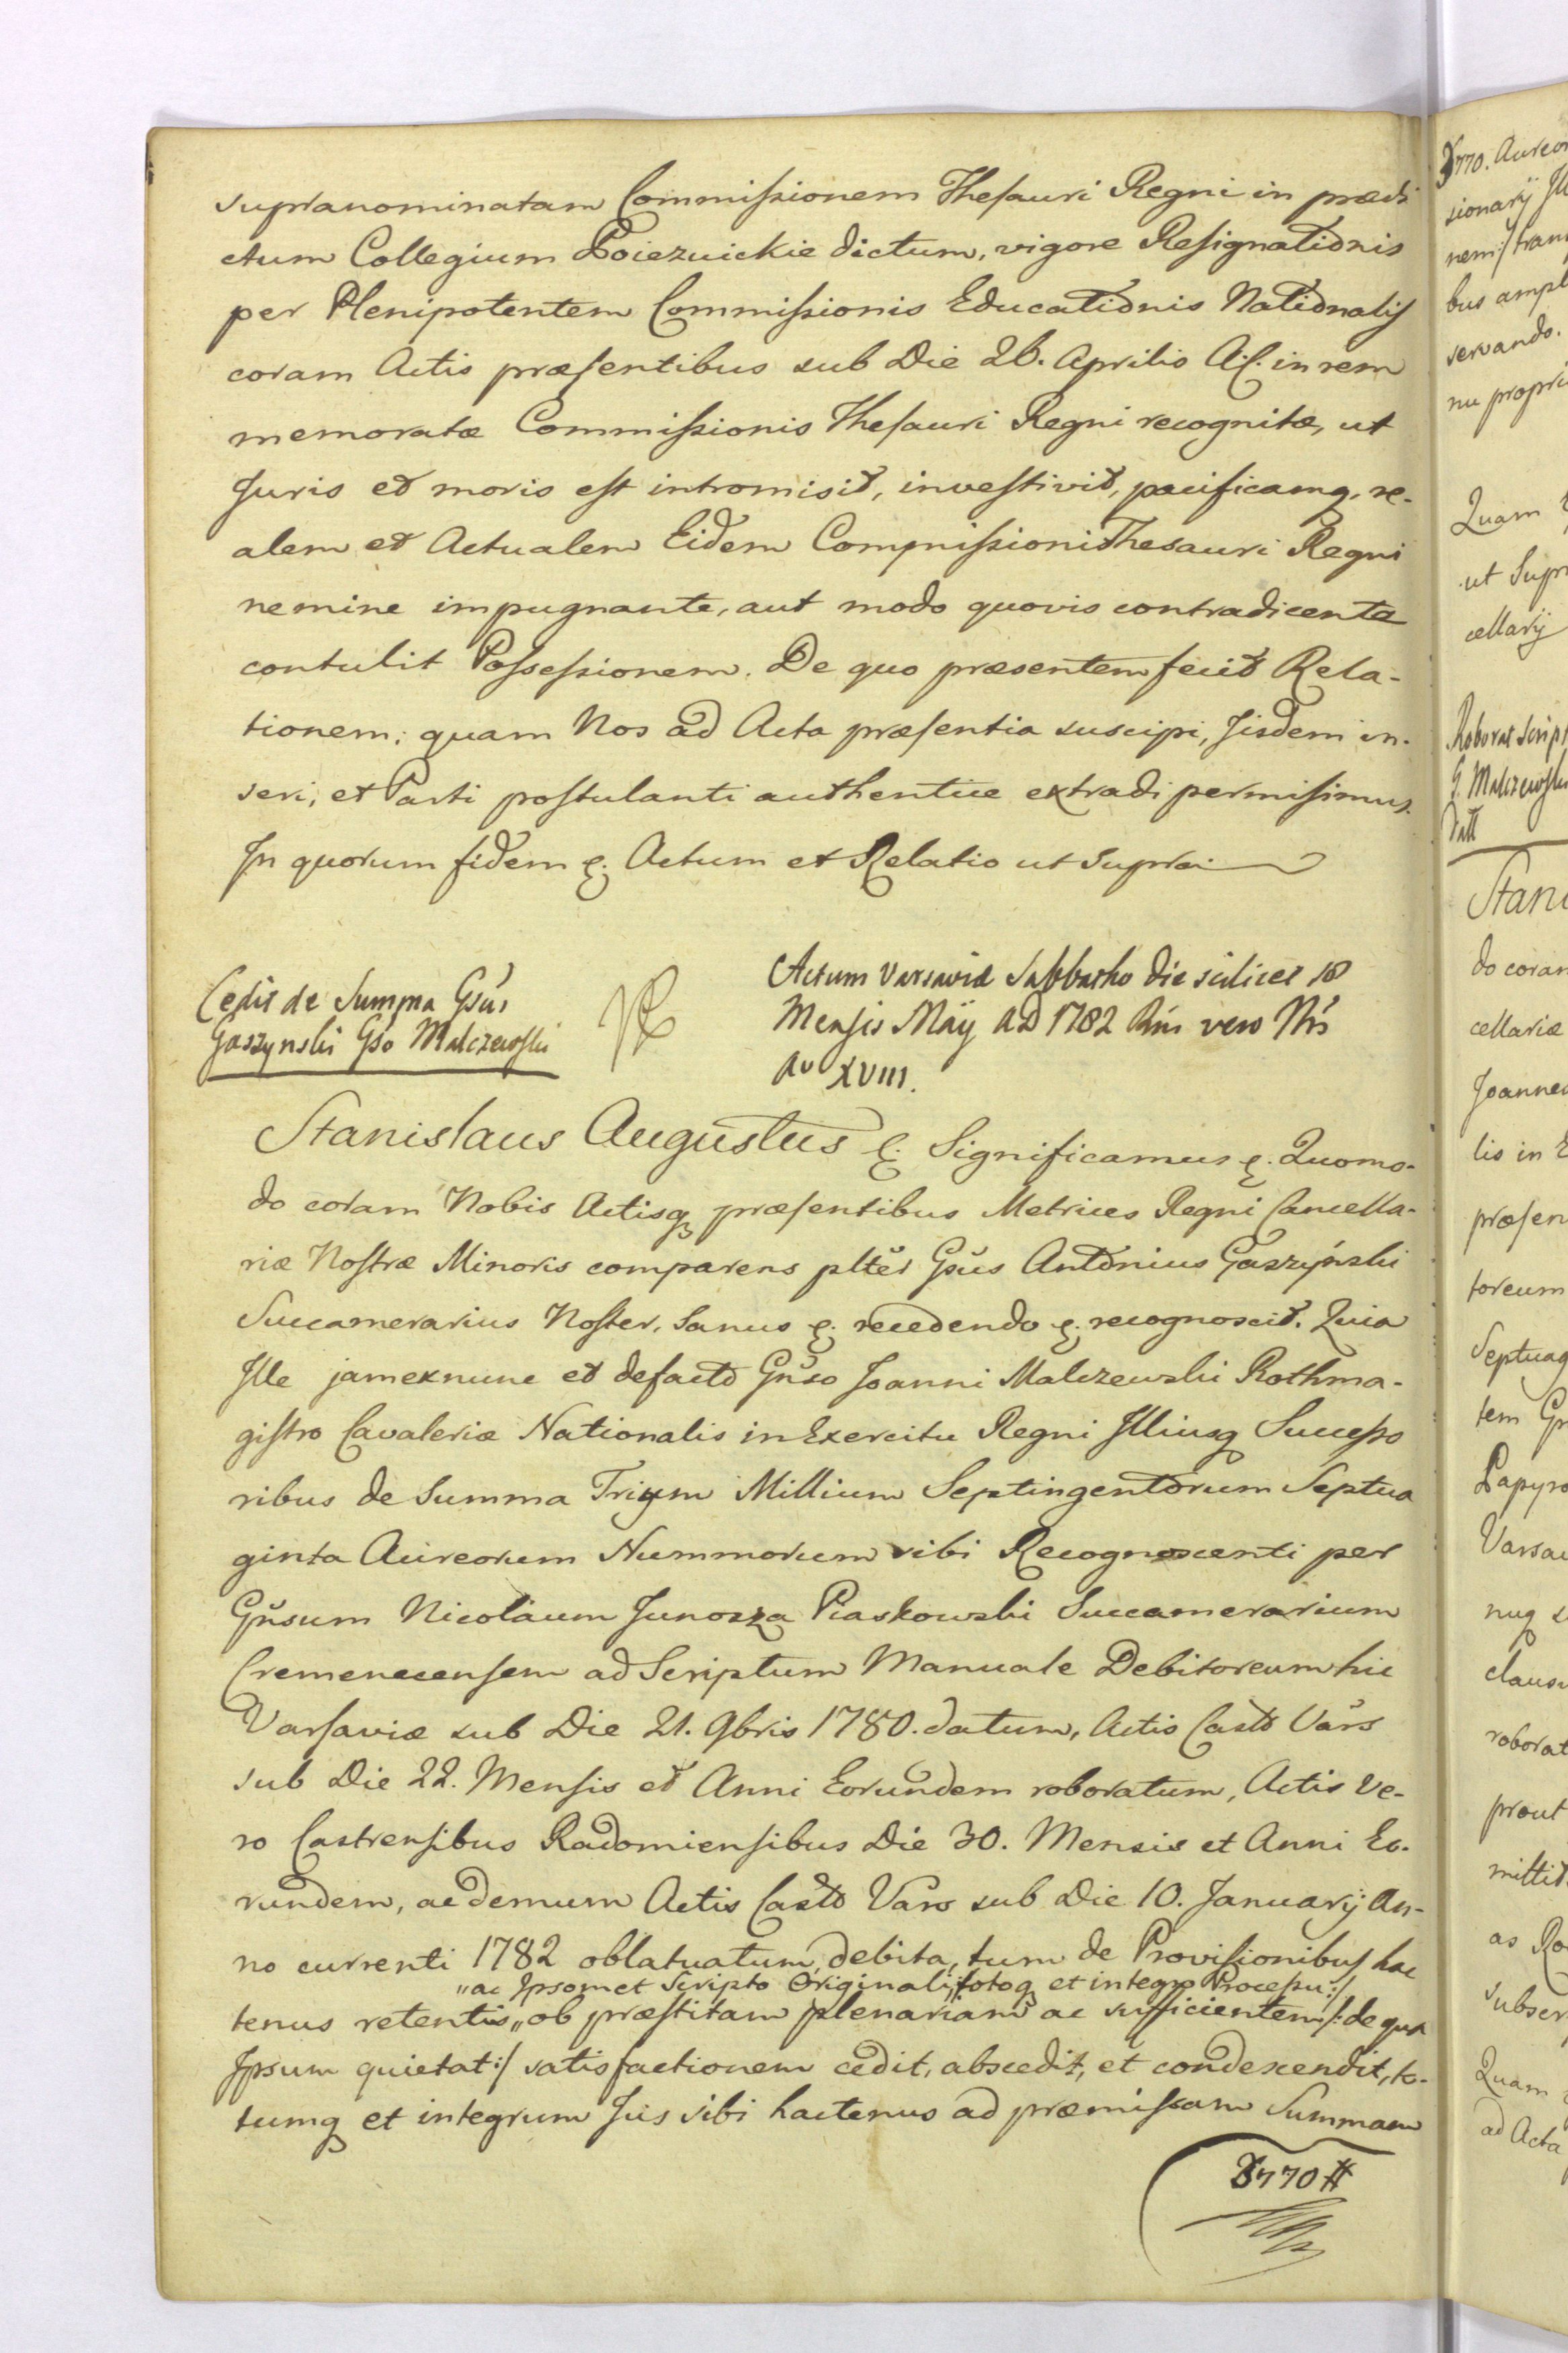 supranominatam Commissionem Thesauri Regni in prædi
ctum Collegium Poiezuickie dictum, vigore Resignationis
per Plenipotentem Commissionis Educationis Nationalis
coram Actis præsentibus sub Die 26. Aprilis A.C. in rem
memoratæ Commissionis Thesauri Regni recognitæ, ut
Juris et moris est intromisit, investivit, pacificamq, re-
alem et Actualem Eidem Commissioni Thesauri Regni
nemine impugnante, aut modo quovis contradicente
contulit Possessionem. De quo præsentem fecit Rela-
tionem; quam Nos ad Acta præsentia suscipi, Jisdem in-
seri, et Parti postulanti authentice extradi permisimus.
In quorum fidem &. Actum et Relatio ut supra
Cedit de Summa Gsús
Gaszynski Gso Malczewski
Actum Varsaviæ Sabbatho die scilicet 18
Mensis Maÿ AD 1782 Rni vero Nri
Ao XVIII.
Stanislaus Augustus &. Significamus &. Quomo-
do coram Nobis Actisq præsentibus Metrices Regni Cancella-
riæ Nostræ Minoris comparens plter Gsus Antonius Gaszyński
Succamerarius Noster, Sanus &. recedendo &. recognoscit. Quia
Ille jamexnunc et defacto Gnso Joanni Malczewski Rothma-
gistro Cavaleriæ Nationalis in Exercitu Regni Illiusq Successo
ribus de Summa Trium Millium Septingentorum Septua
ginta Aureorum Nummorum sibi Recognoscenti per
Gnsum Nicolaum Junosza Piaskowski Succamerarium
Cremenecensem ad Scriptum Manuale Debitoreum hic
Varsaviæ sub Die 21. 9bris 1780. datum, Actis Casto Vars
sub Die 22. Mensis et Anni Eorundem roboratum, Actis ve-
ro Castrensibus Radomiensibus Die 30. Mensis et Anni Eo-
rundem, ac demum Actis Casto Vars sub Die 10. Januarij An-
no currenti 1782 oblatuatum, debita, tum de Provisionibus hac
„ac Ipsomet Scripto Originali, totoq et integro Processu:/
tenus retentis„ ob præstitam plenariam ac sufficientem /: de qua
Ipsum quietat :/ satisfactionem cedit, abscedit, et condescendit, to-
tumq et integrum Jus sibi hactenus ad præmissam Summam
3770 #
3770. Aureor
sionarij Ill
nem:/ tran
bus ampl
servando.
nu propri
Quam
ut Supr
cellarij
Roborat Script
G. Malczewski
Datt
Stani
do coram
cellariæ
Joannes
lis in E
præsen
toreum
Septuag
tem Gn
Papyro
Varsav
nuq s
claus
roborat
prout
mittit
as Ro
subscr
Quam
ad Acta